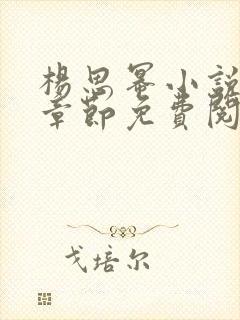 楊思冪小說
章節免費閱
戈培尔